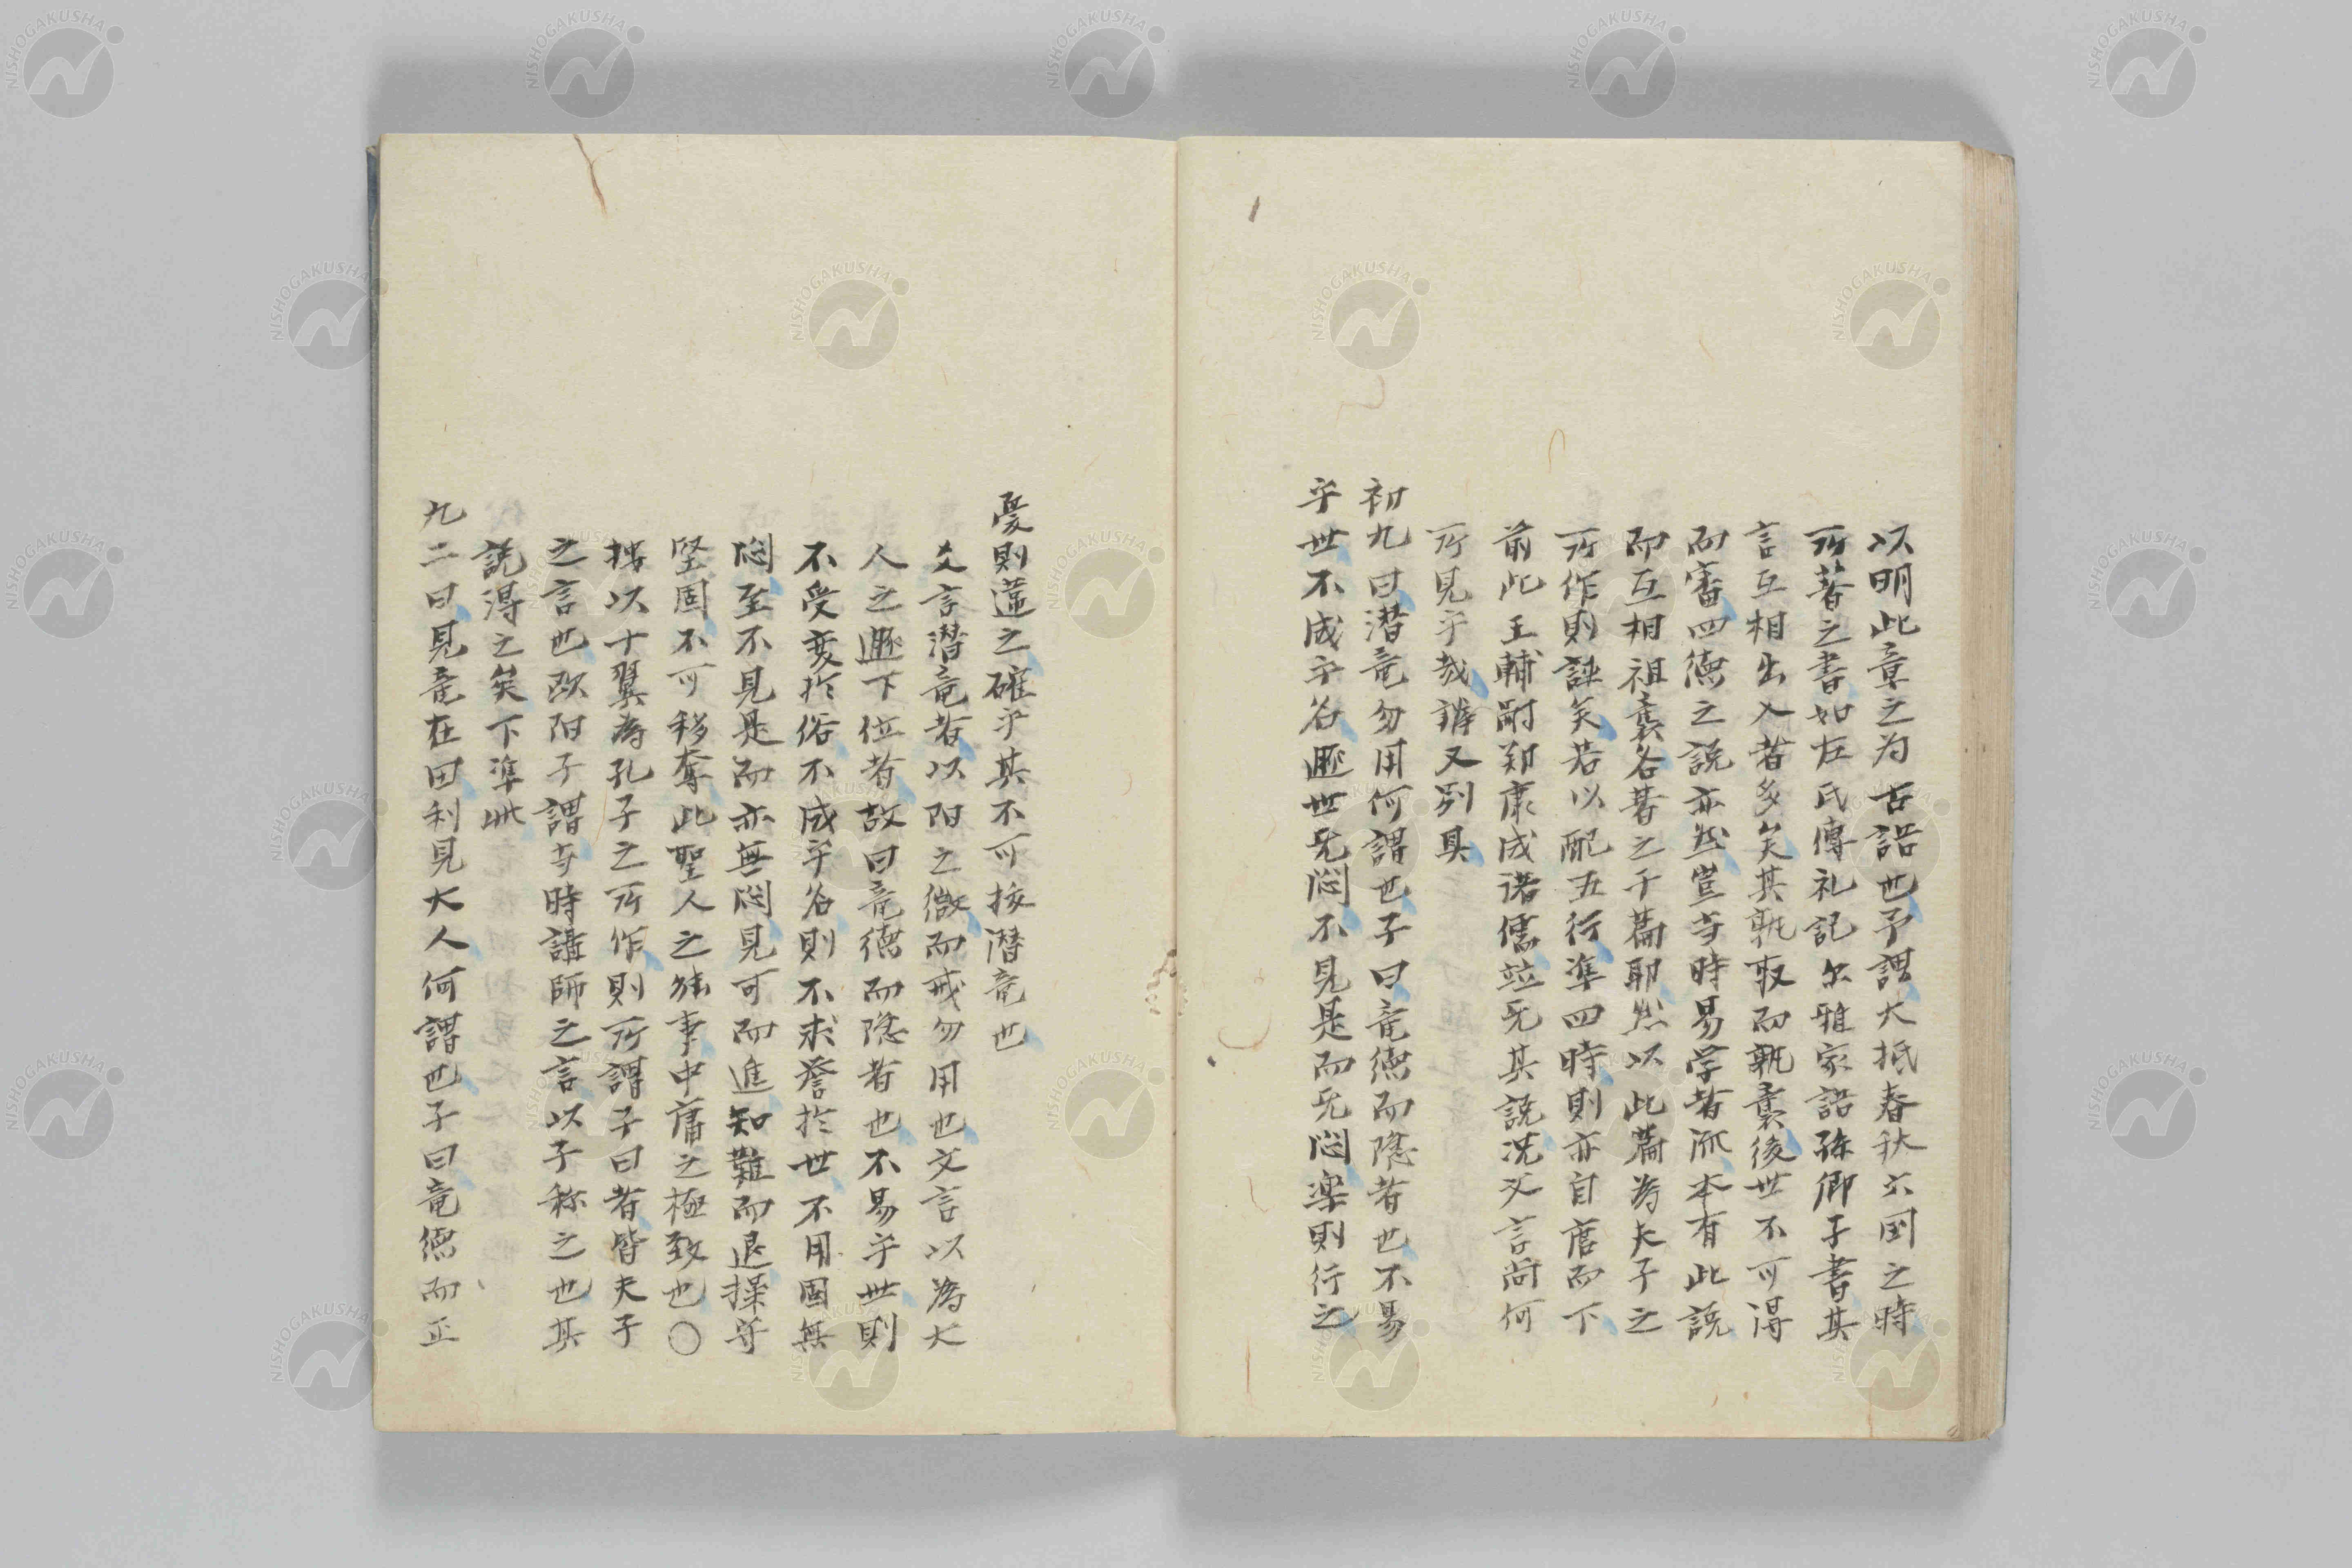 以明此章之为古語也予謂大抵春秋六国之時
所著之書如左氏傳礼記尓雅家語孫卿子書其
言互相出入者多矣其孰取而孰襲後世不可得
而審四徳之説亦然豈古時易学者流本有此説
而互相祖襲各著之于篇耶然以此篇為夫子之
所作則誣矣若以配五行準四時則亦自唐而下
前此王輔嗣郑康成诸儒竝无其説况文言尚何
所見乎哉辨又别具
初九曰潜竜勿用何謂也子曰竜徳而隠者也不易
乎世不成乎名遯世无悶不見是而无悶楽則行之
憂則違之確乎其不可拔潜竜也
文言潜竜者以阳之微而戒勿用也文言以為大
人之遯下位者故曰竜徳而隠者也不易乎世則
不受変於俗不成乎名則不求誉於世不用固無
悶至不見是而亦無悶見可而進知難而退操守
堅固不可移奪此聖人之能事中庸之極致也〇
按以十翼為孔子之所作則所謂子曰者皆夫子
之言也欧阳子謂古時講師之言以子称之也其
説得之矣下準此
九二曰見竜在田利見大人何謂也子曰竜徳而正
NISHOGAKUSHA